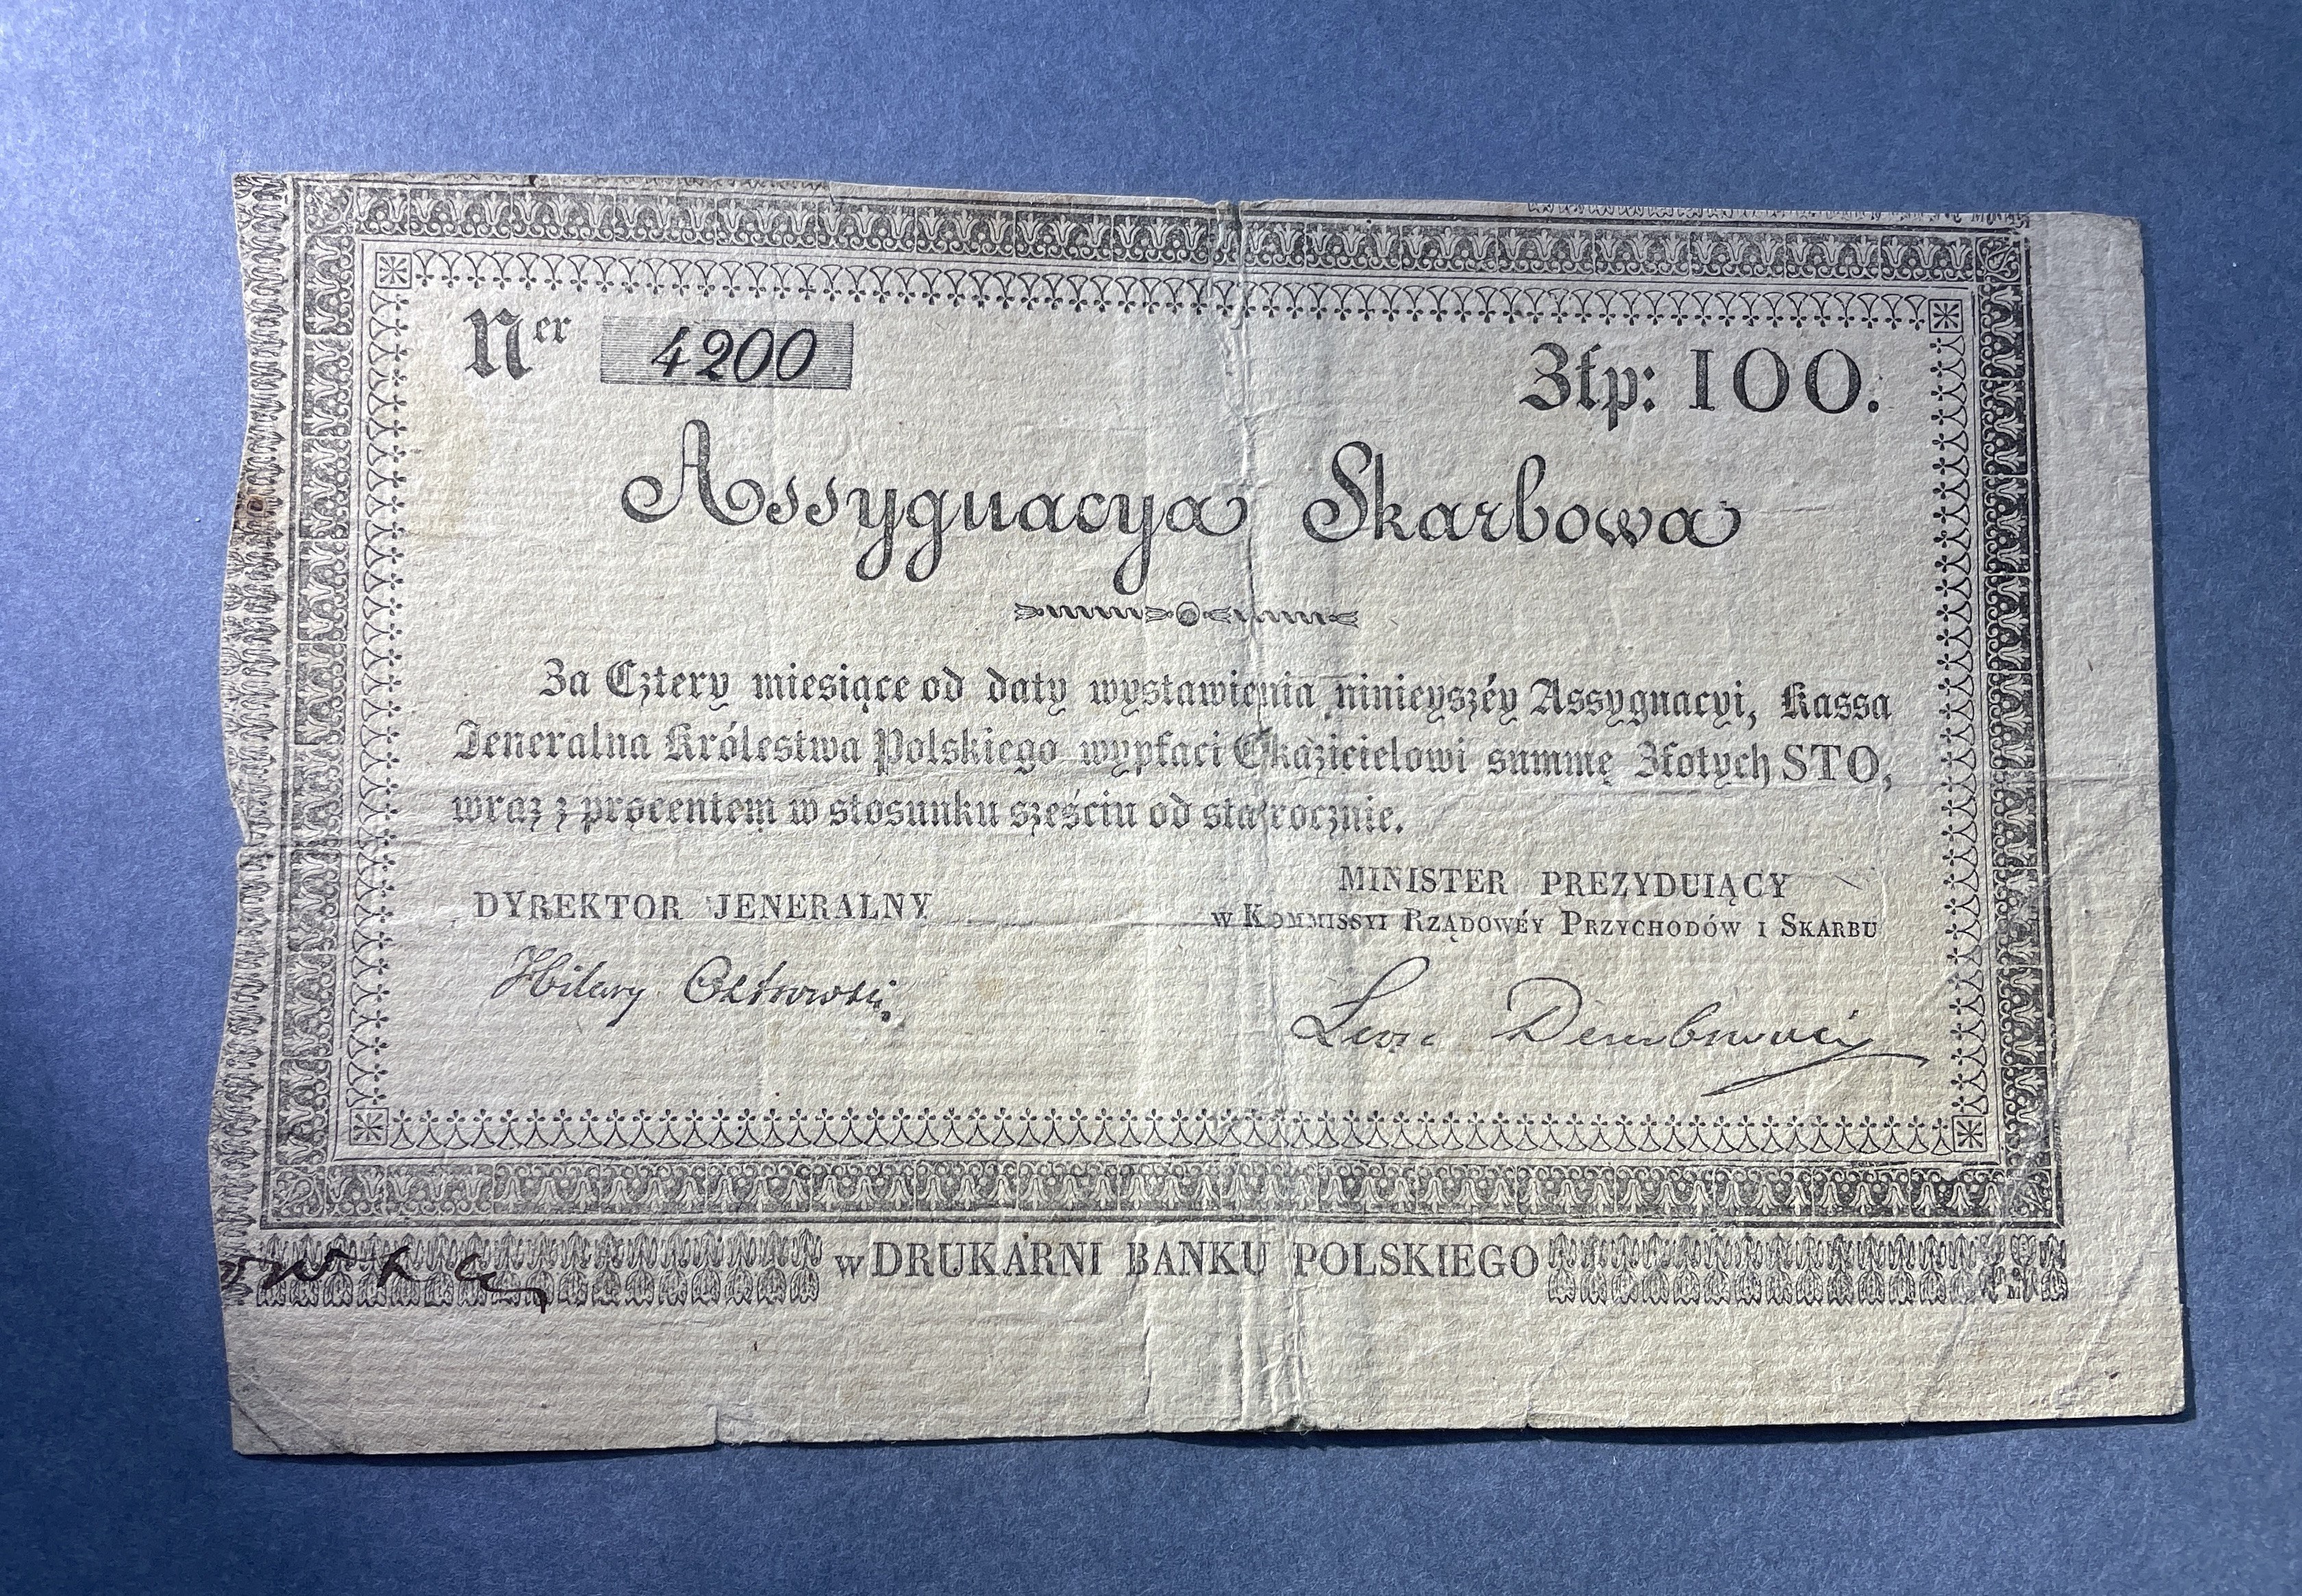 Ner 4200
Złp: 100.
Assygnacya Skarbowa
Za Cztery miesiące od daty wystawienia ninieyszéy Assygnacyi, Kassa
Jeneralna Królestwa Polskiego wypłaci Okazicielowi summę Złotych STO,
wraz z procentem w stosunku sześciu od sta rocznie.
DYREKTOR JENERALNY
MINISTER PREZYDUIĄCY
w KOMMISSYI RZĄDOWÉY PRZYCHODÓW I SKARBU
Hilary Ostrowski
Leon Dembowski
w DRUKARNI BANKU POLSKIEGO